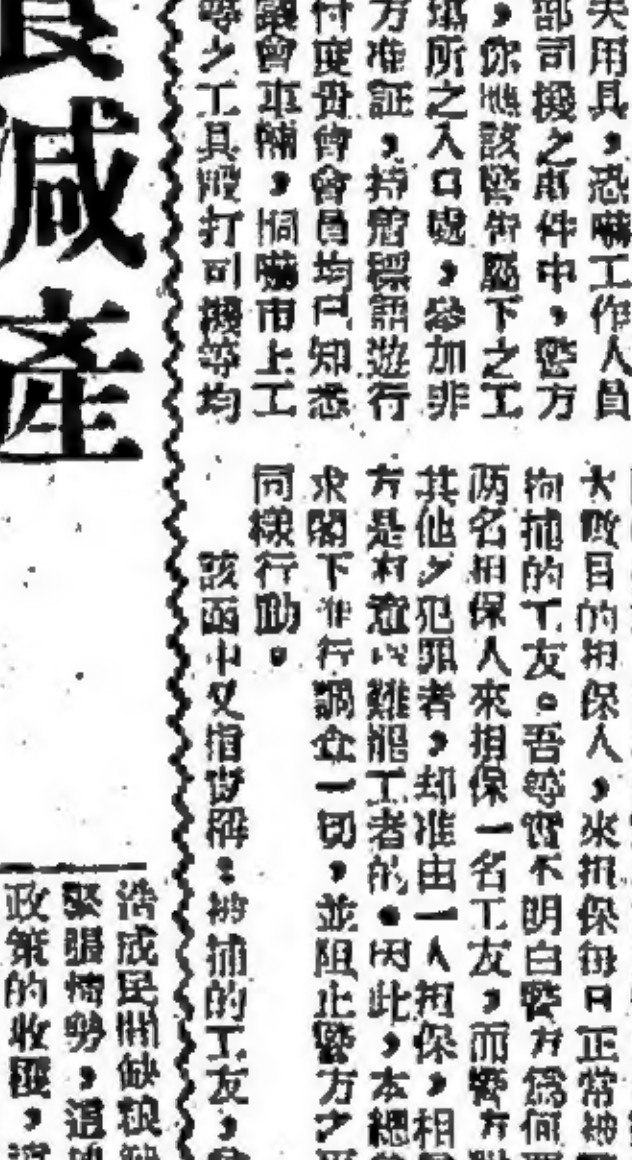 夫用具，恐嚇工作人員
部司機之事件中，警方
，你應該警告屬下之工
場所之入口處，參加非
方准証，持着標語遊行
付度貴會會員均已知悉
會車輛，恫嚇市上工
等之工具毆打司機等均
大數目的担保人，來担保每日正常被
拘捕的工友。吾等實不明白警方為何
两名担保人來担保一名工友，而警方
其他之犯罪者，却准由一人担保，相
方是有意以難罷工者的。因此，本總
求閣下進行調查一切，並阻止警方之
同樣行動。
該函中又指責稱：被捕的工友，
減產
造成民間缺粮
緊張情勢，這
政策的收穫，